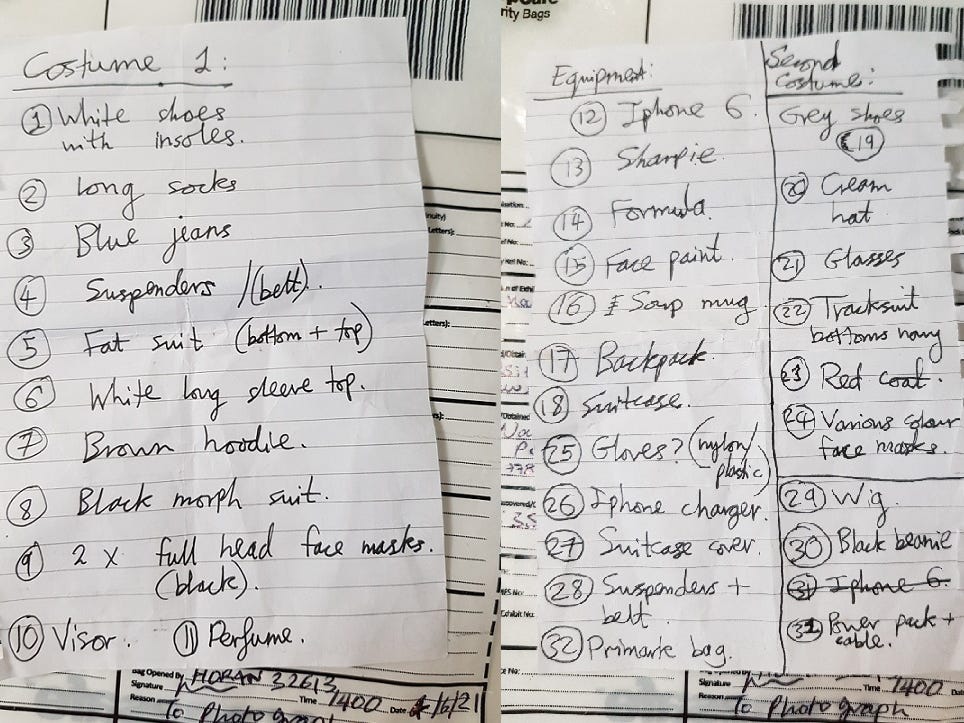 Costume 1:
① White shoes
with insoles.
② Long socks
③ Blue jeans
④ Suspenders /(belt).
⑤ Fat suit (bottom + top)
⑥ White long sleeve top.
⑦ Brown hoodie.
⑧ Black morph suit.
⑨ 2 x full head face masks.
(black).
⑩ Visor. ⑪ Perfume.
Bag Opened By HORAN 32613
Signature Time 1400 Date 1/6/21
Reason To Photograph
rity Bags
Equipment:
⑫ Iphone 6.
⑬ Sharpie.
⑭ Formula.
⑮ Face paint.
⑯ Soup mug
⑰ Backpack
⑱ Suitcase.
㉕ Gloves? (nylon/
plastic)
㉖ Iphone charger.
㉗ Suitcase cover.
㉘ Suspenders +
belt.
㉜ Primark bag.
Second
Costume:
Grey shoes
⑲
⑳ Cream
hat
㉑ Glasses
㉒ Tracksuit
bottoms navy
㉓ Red coat.
㉔ Various colour
face masks.
㉙ Wig.
㉚ Black beanie
㉛ Iphone 6.
㉛ Power pack +
cable.
Signature Time 1400
Reason To Photograph